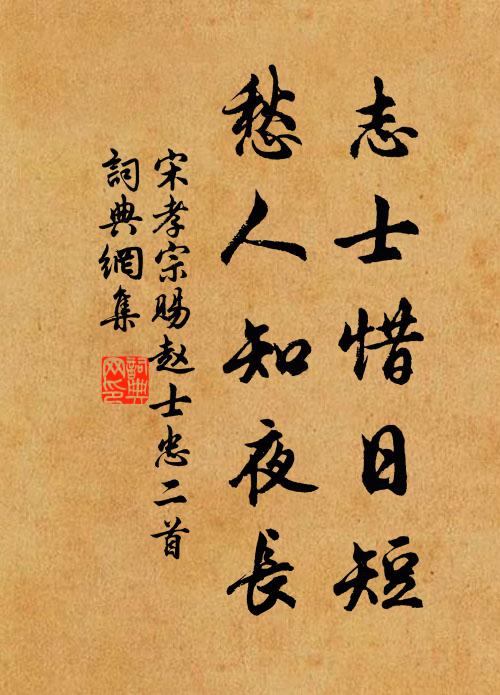 志士惜日短
愁人知夜長
宋孝宗賜赵士忠二首
詞典網集
詞典網印